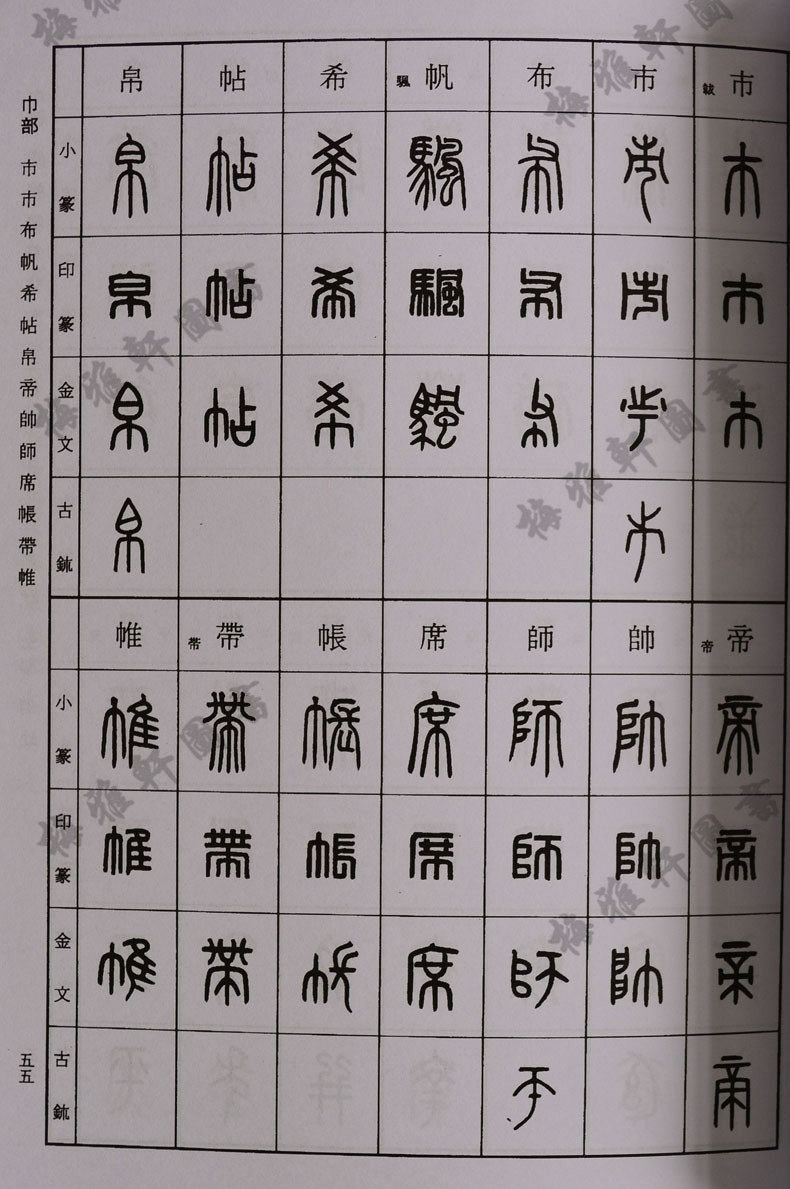 巿 市 布 帆 颿 希 帖 帛
小篆
印篆
金文
古鉥
帝 帝 帥 師 席 帳 帶 帯 帷
小篆
印篆
金文
古鉥
巾部 巿市布帆希帖帛帝帥師席帳帶帷
五五
梅雅軒圖書